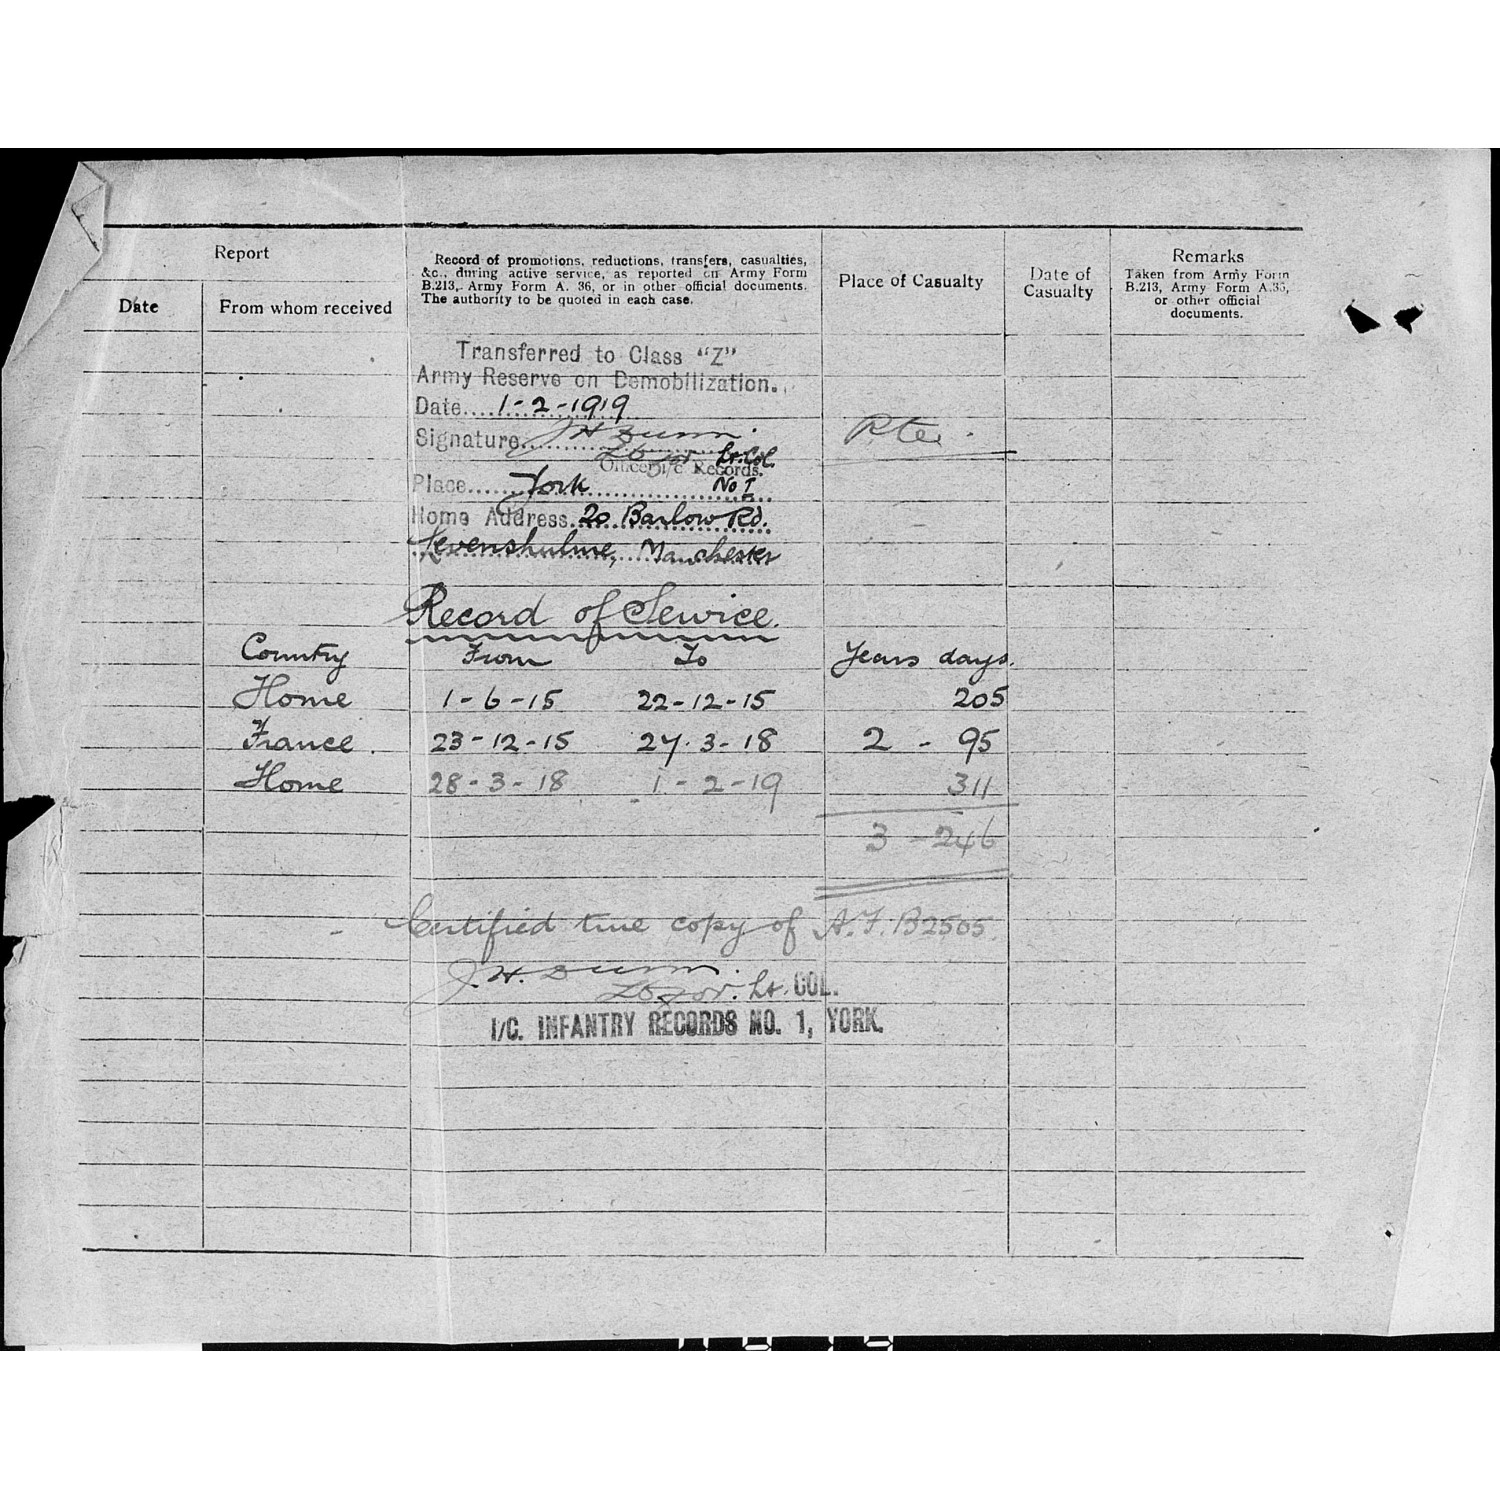 Report
Date
From whom received
Record of promotions, reductions, transfers, casualties,
&c., during active service, as reported on Army Form
B.213, Army Form A. 36, or in other official documents.
The authority to be quoted in each case.
Place of Casualty
Date of
Casualty
Remarks
Taken from Army Form
B.213, Army Form A.36,
or other official
documents.
Transferred to Class "Z"
Army Reserve on Demobilization.
Date....1-2-1919
Signature J H Dunn
Lt. Col.
Officer i/c Records.
Place York No 1
Home Address 20 Barlow Rd.
Levenshulme, Manchester
Pte.
Record of Service.
Country From To Years days.
Home 1-6-15 22-12-15 205
France. 23-12-15 27.3-18 2 - 95
Home 28-3-18 1-2-19 311
3 - 246
Certified true copy of A.F. B2505.
J. H. Dunn.
for. Lt. COL.
I/C. INFANTRY RECORDS NO. 1, YORK.